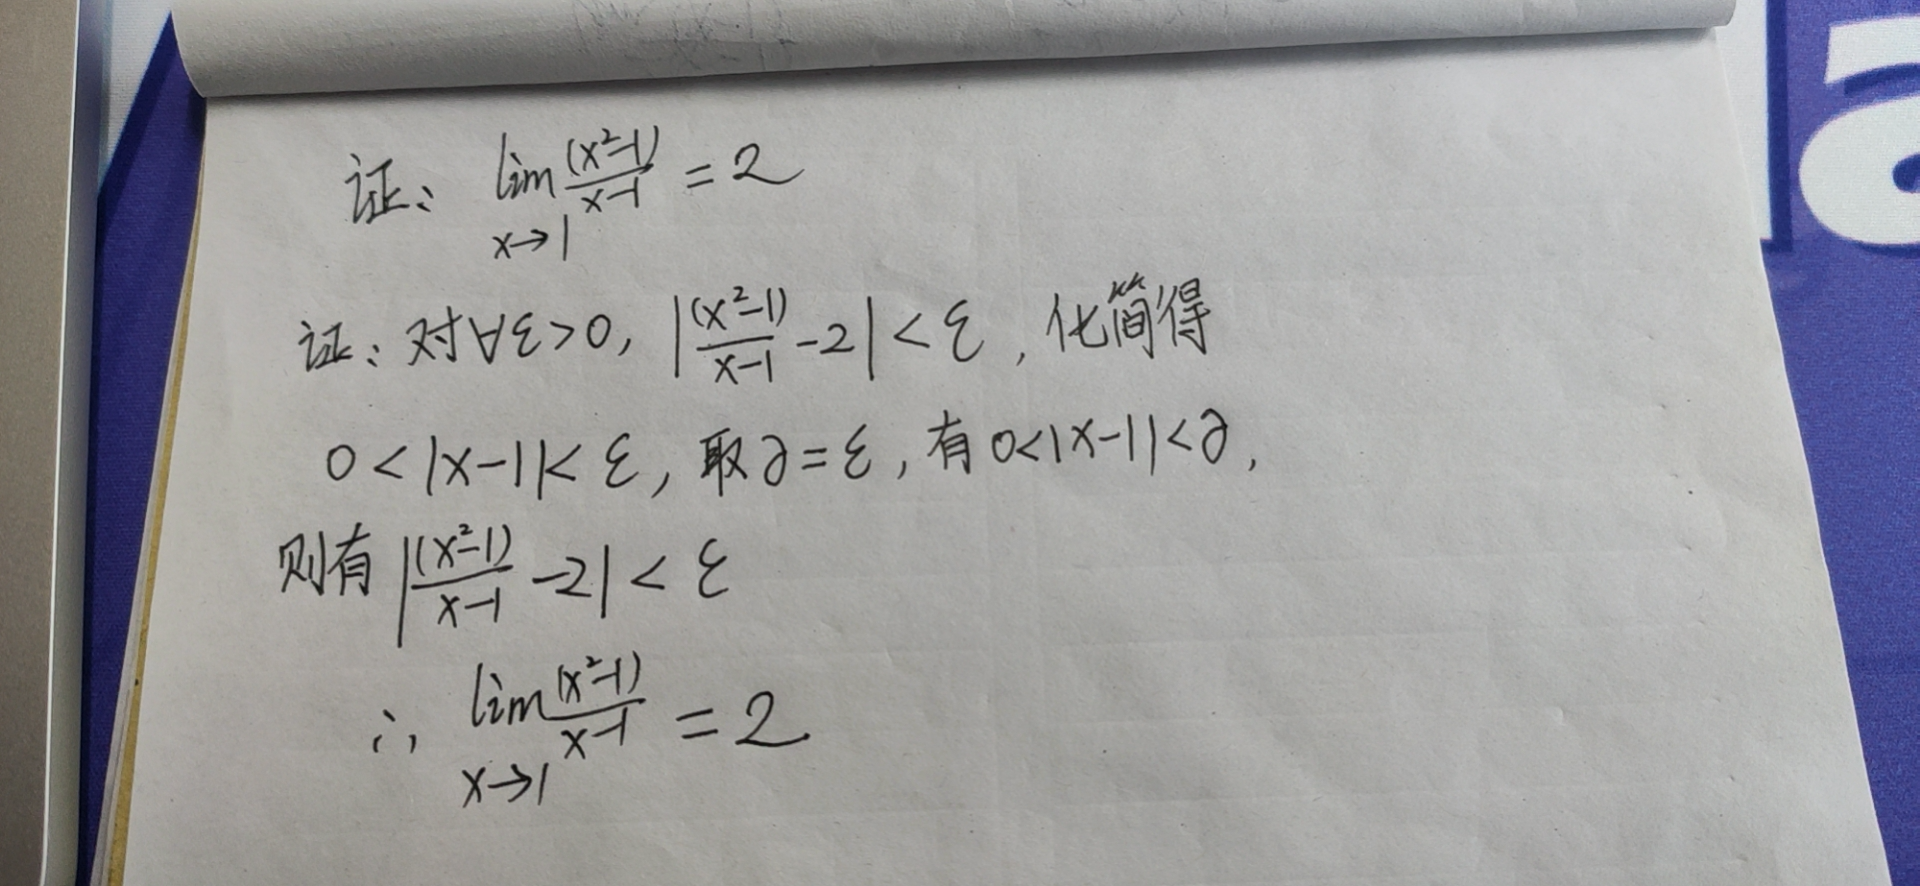 证: lim (x²-1)/(x-1) = 2
x→1
证: 对∀ε>0, |(x²-1)/(x-1) -2| < ε, 化简得
0<|x-1|<ε, 取∂=ε, 有0<|x-1|<∂,
则有 |(x²-1)/(x-1) -2| < ε
∴ lim (x²-1)/(x-1) = 2
x→1
a